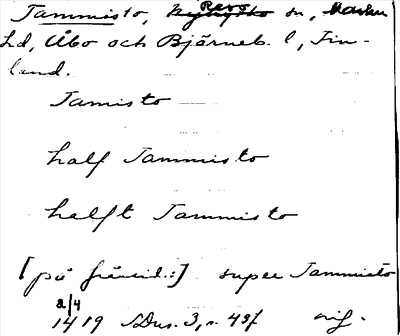 Tammisto, Revo sn, Masku
hd, Åbo och Björneb. l, Fin-
land.
Tamisto
half Tammisto
helft Tammisto
[på frånsid.:] super Tammisto
2/4
1419 SDns. 3, s. 427 orig.